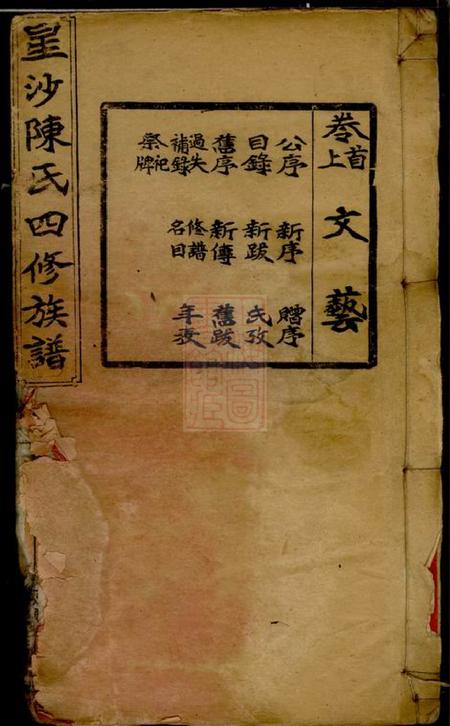 星沙陳氏四修族譜
卷首上 文藝
公序 新序 贈序
目錄 新跋 氏攷
舊序 新傳 舊跋
過失補錄 修譜名目 年歿
祭祀牌